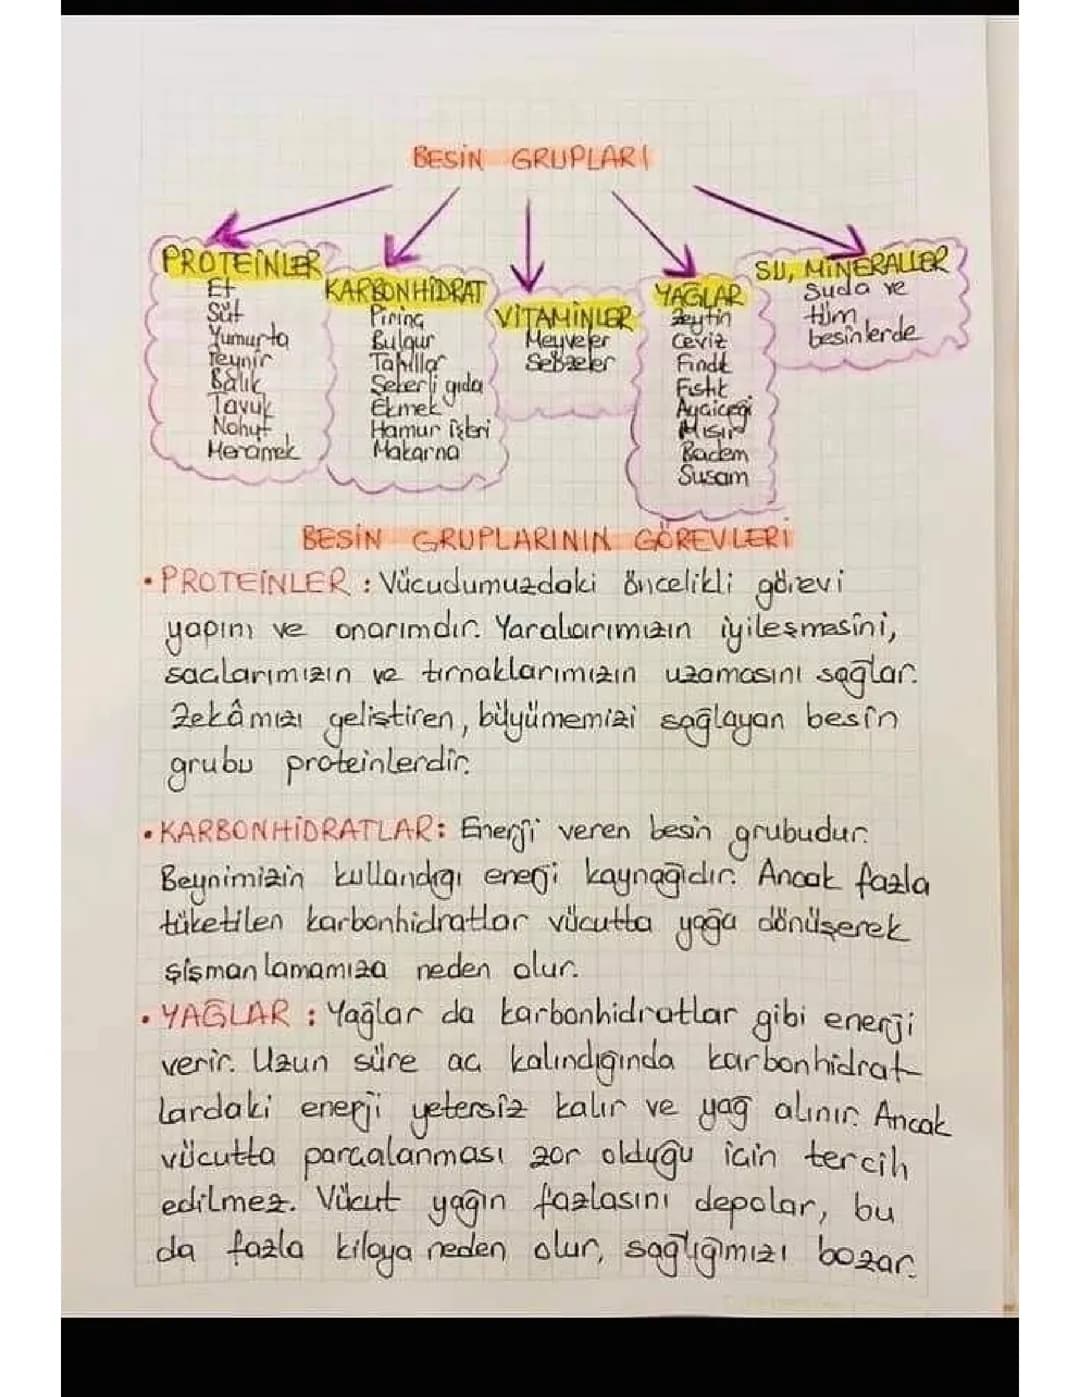 BESİN GRUPLARI
PROTEİNLER
Et
Süt
Yumurta
Peynir
Balık
Tavuk
Nohut
Mercimek
KARBONHİDRAT
Pirinç
Bulgur
Tahıllar
Şekerli gıda
Ekmek
Hamur işleri
Makarna
VİTAMİNLER
Meyveler
Sebzeler
YAĞLAR
Zeytin
Ceviz
Fındık
Fıstık
Ayçiçeği
Mısır
Badem
Susam
SU, MİNERALLER
Suda ve
tüm
besinlerde
BESİN GRUPLARININ GÖREVLERİ
• PROTEİNLER : Vücudumuzdaki öncelikli görevi
yapım ve onarımdır. Yaralarımızın iyileşmesini,
saçlarımızın ve tırnaklarımızın uzamasını sağlar.
Zekâmızı geliştiren, büyümemizi sağlayan besin
grubu proteinlerdir.
• KARBONHİDRATLAR: Enerji veren besin grubudur.
Beynimizin kullandığı enerji kaynağıdır. Ancak fazla
tüketilen karbonhidratlar vücutta yağa dönüşerek
şişmanlamamıza neden olur.
• YAĞLAR : Yağlar da karbonhidratlar gibi enerji
verir. Uzun süre aç kalındığında karbonhidrat-
lardaki enerji yetersiz kalır ve yağ alınır. Ancak
vücutta parçalanması zor olduğu için tercih
edilmez. Vücut yağın fazlasını depolar, bu
da fazla kiloya neden olur, sağlığımızı bozar.